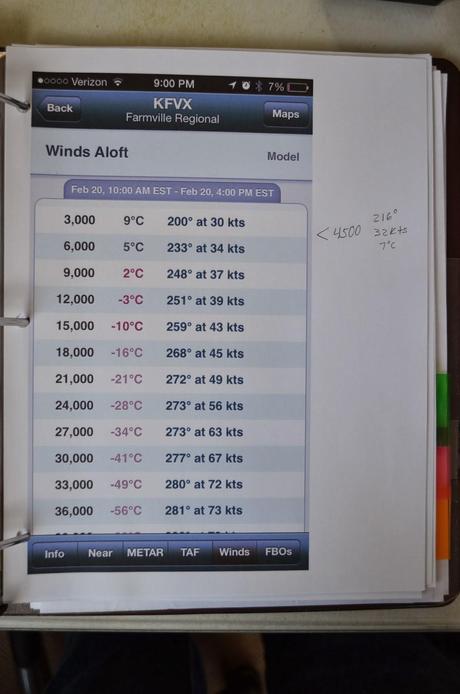 Verizon 9:00 PM 7%
Back KFVX Maps
Farmville Regional
Winds Aloft Model
Feb 20, 10:00 AM EST - Feb 20, 4:00 PM EST
3,000 9°C 200° at 30 kts
6,000 5°C 233° at 34 kts
9,000 2°C 248° at 37 kts
12,000 -3°C 251° at 39 kts
15,000 -10°C 259° at 43 kts
18,000 -16°C 268° at 45 kts
21,000 -21°C 272° at 49 kts
24,000 -28°C 273° at 56 kts
27,000 -34°C 273° at 63 kts
30,000 -41°C 277° at 67 kts
33,000 -49°C 280° at 72 kts
36,000 -56°C 281° at 73 kts
Info Near METAR TAF Winds FBOs
216°
< 4500 32kts
7°C